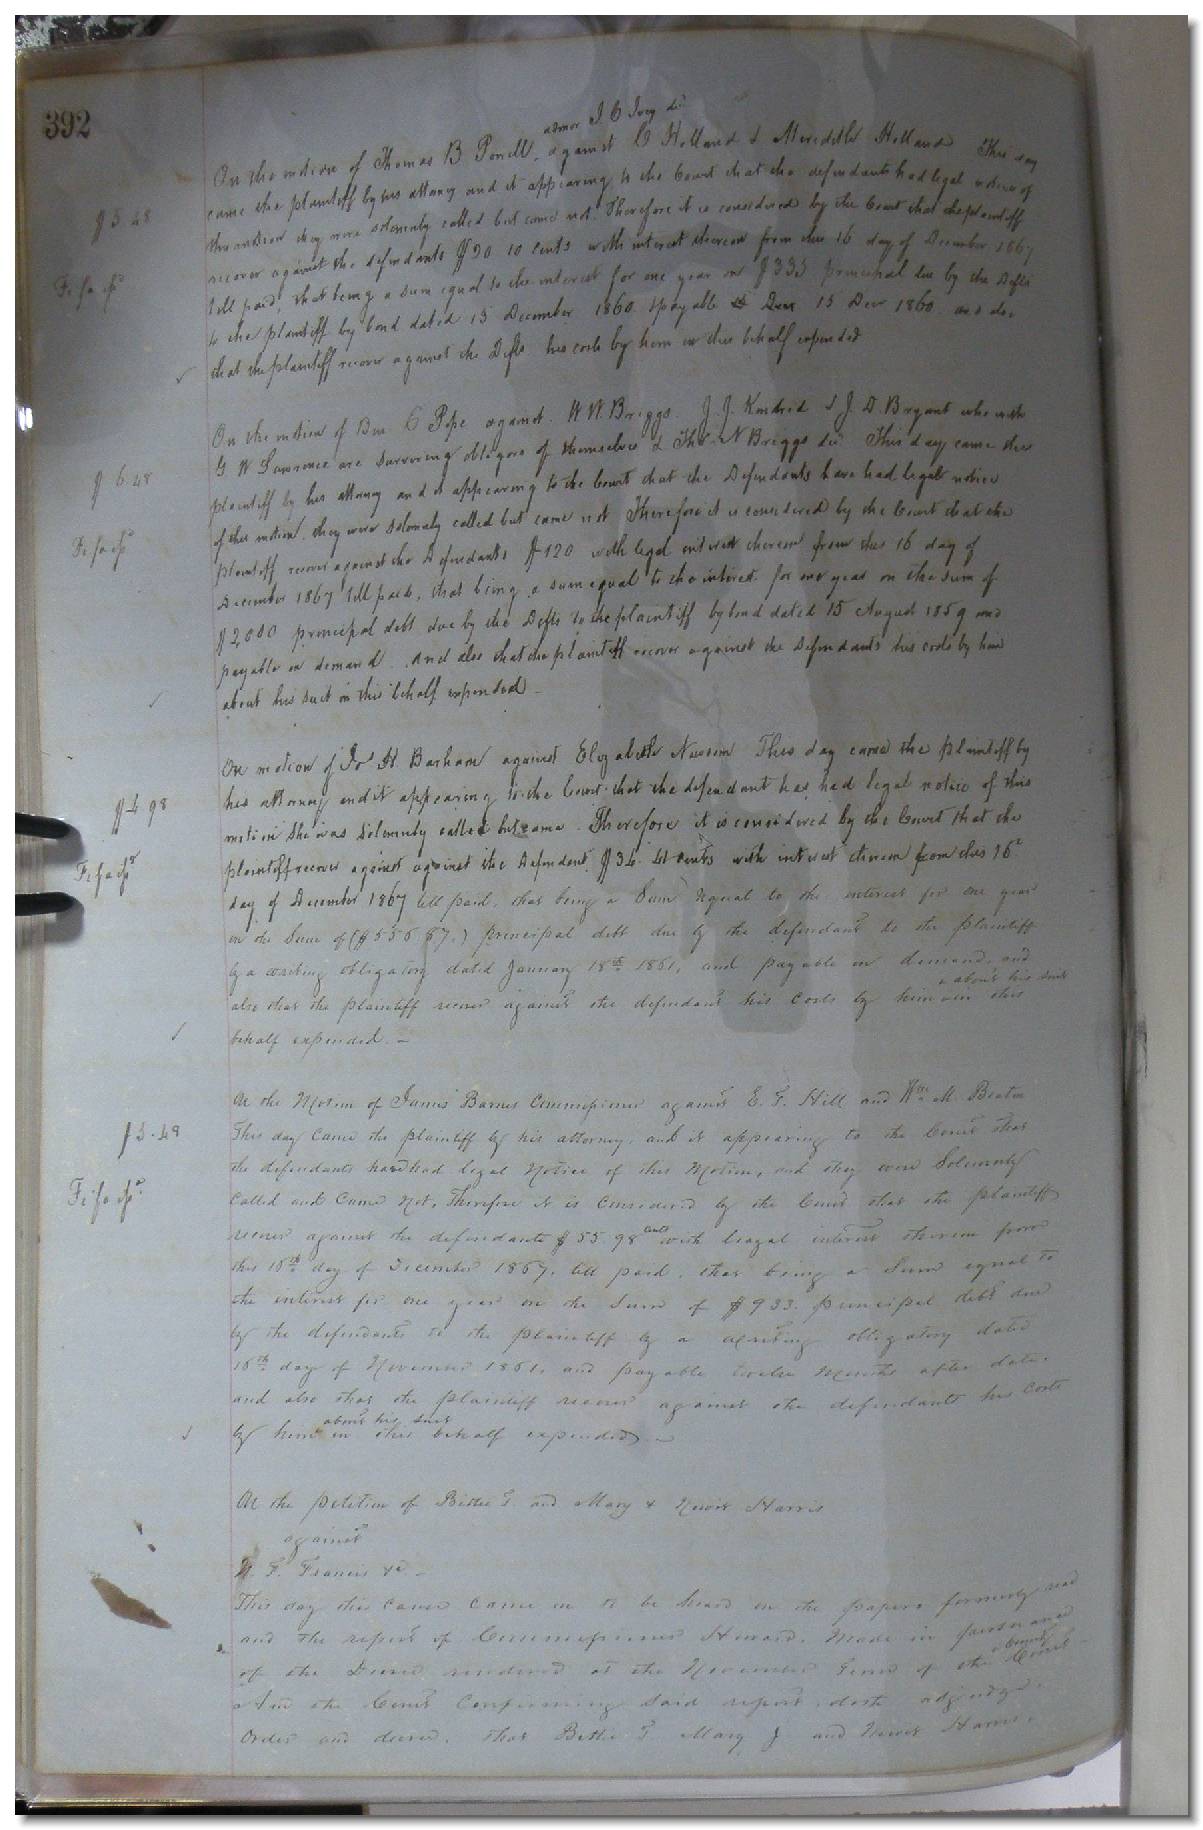 392
admor J C Ivey decd
On the motion of Thomas B Powell, against C Holland & Meredith Holland This day
$5.48
came the plaintiff by his attorney and it appearing to the Court that the defendants had legal notice of
this motion they were solemnly called but came not. Therefore it is considered by the Court that the plaintiff
recover against the defendants $20 10 cents with interest thereon from this 16 day of December 1867
Fi fa
till paid, that being a sum equal to the interest for one year on $335 principal due by the Defts
to the plaintiff by bond dated 15 December 1860 payable 15 Dec 1860 and also
that the plaintiff recover against the Defts his costs by him in this behalf expended
On the motion of Ben C Pope against W W. Briggs. J. J. Kindred & J. D. Bryant who with
G W Lawrence are surviving obligors of themselves & Thos N Briggs decd This day came the
$6.48
plaintiff by his attorney and it appearing to the Court that the Defendants have had legal notice
of this motion, they were solemnly called but came not Therefore it is considered by the Court that the
Fi fa
plaintiff recover against the Defendants $120 with legal interest thereon from this 16 day of
December 1867 till paid, that being a sum equal to the interest for one year on the sum of
$2000 principal debt due by the Defts to the plaintiff by bond dated 15 August 1859 and
payable on demand. And also that the plaintiff recover against the Defendants his costs by him
about his suit in this behalf expended -
On motion of Jo H Barham against Elizabeth Newsom This day came the plaintiff by
his attorney and it appearing to the Court that the defendant has had legal notice of this
$4 98
motion She was solemnly called but came. Therefore it is considered by the Court that the
plaintiff recover against against the Defendant $34. 41 cents with interest thereon from this 16th
Fi fa
day of December 1867 till paid, that being a Sum equal to the interest for one year
on the Sum of ($556.87.) principal debt due by the defendant to the plaintiff
by a writing obligatory dated January 18th 1861, and payable on demand, and
about his suit
also that the plaintiff recover against the defendant his Costs by him in this
behalf expended. -
At the Motion of James Barnes Commissioner against E. T. Hill and Wm M. Beaton
$5.48
This day Came the plaintiff by his attorney, and it appearing to the Court that
the defendants had legal Notice of this Motion, and they were Solemnly
Fi fa
Called and Came Not, Therefore it is Considered by the Court that the plaintiff
recover against the defendants $55.98 cents with leagal interest thereon from
this 16th day of December 1867, till paid, that being a Sum equal to
the interest for one year on the Sum of $933. principal debt due
by the defendants to the plaintiff by a writing obligatory dated
16th day of November 1861, and payable twelve Months after date.
and also that the plaintiff recover against the defendants his Costs
about his suit
by him in this behalf expended -
At the petition of Bettie T. and Mary & Newit Harris
against
F. Francis &c -
This day this cause came on to be heard on the papers formerly read
and the report of Commissioner Howard, Made in pursuance
of the Decree rendered at the November Term of the Court
And the Court Confirming Said report, doth adjudge.
Order and decree, that Bettie T. Mary J and Newit Harris.